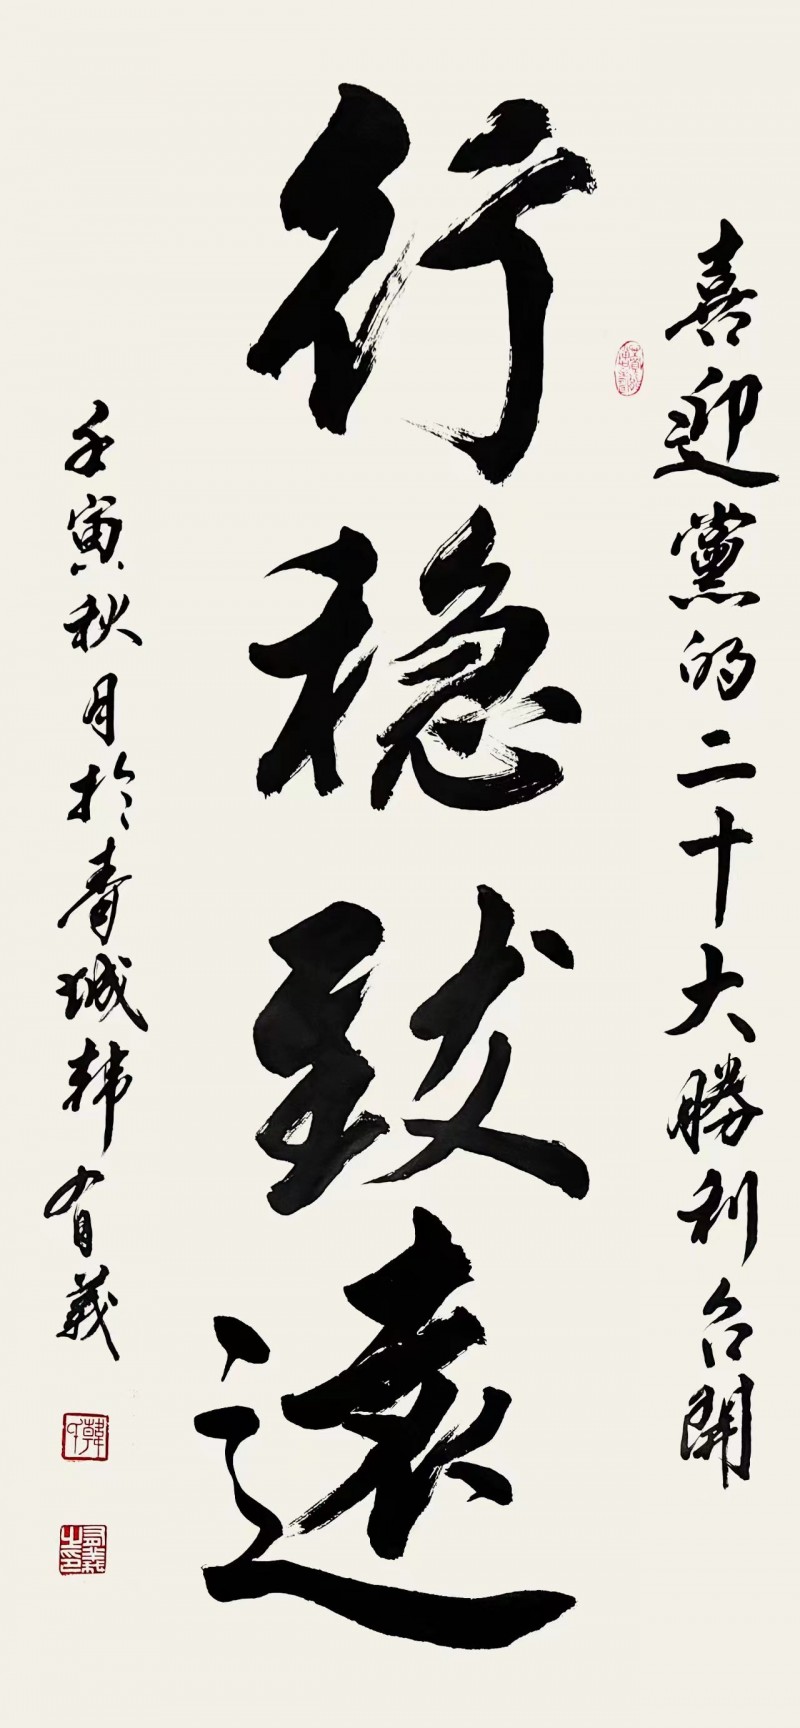 喜迎黨的二十大勝利召開
行稳致遠
壬寅秋月於青城韩有義
韓
有義之印